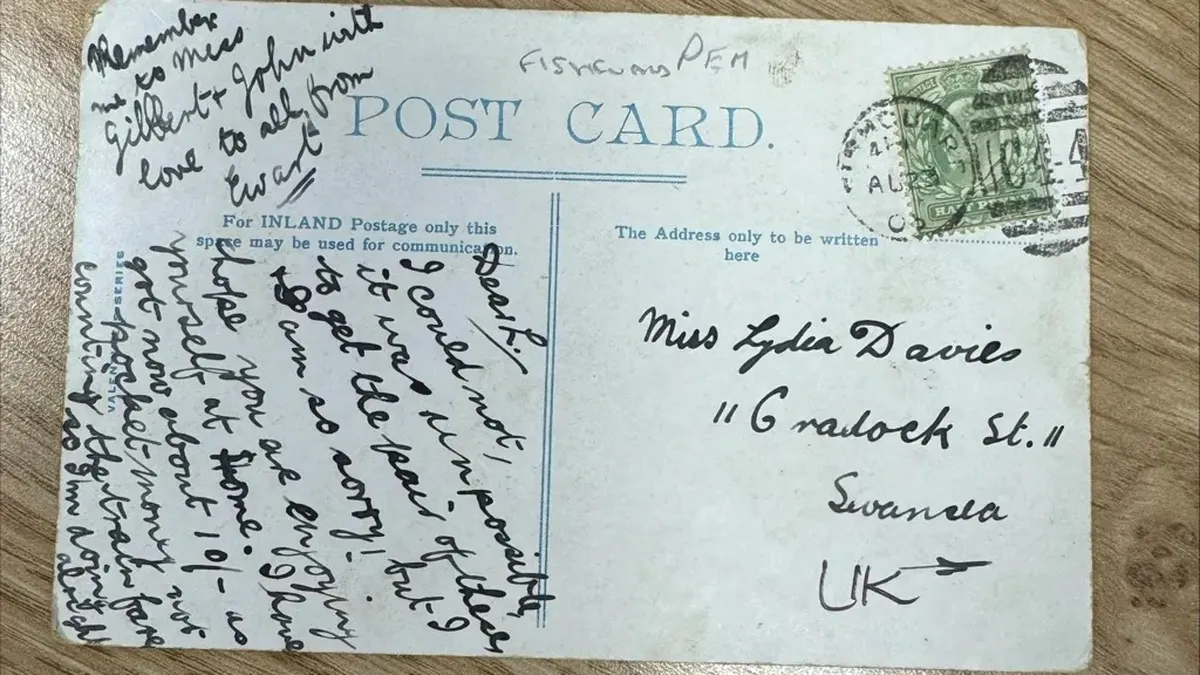 Remember
me to Miss
Gilbert + John with
love to all from
Ewart
PEM
POST CARD.
For INLAND Postage only this
space may be used for communication.
The Address only to be written
here
Dear L.
I could not,
it was unpossible,
to get the pair of these
I am so sorry! but I
hope you are enjoying
yourself at Home. I have
got now about 10/- as
pocket-money not
counting the train fare
so I'm doing alright
SERIES
Miss Lydia Davies
11 Cradock St.
Swansea
UK